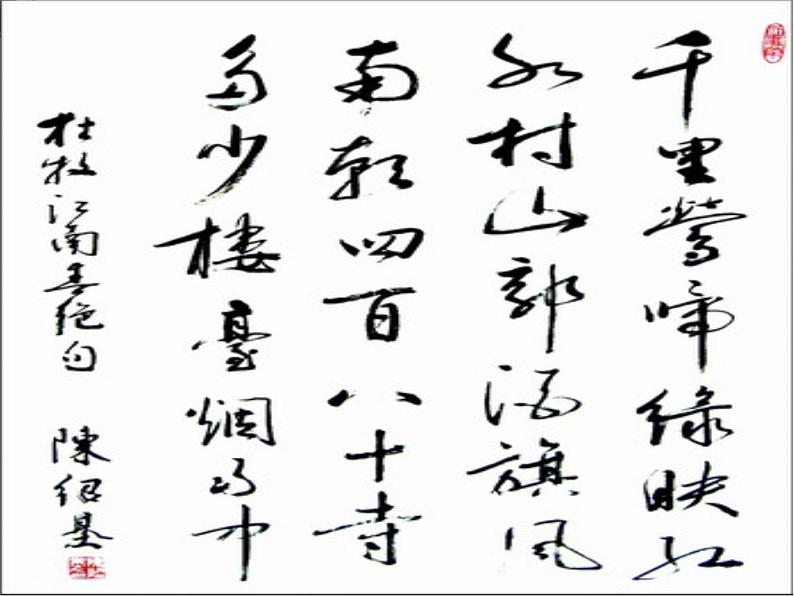 千里鶯啼綠映紅
水村山郭酒旗風
南朝四百八十寺
多少樓臺烟雨中
杜牧江南春绝句
陳紹基